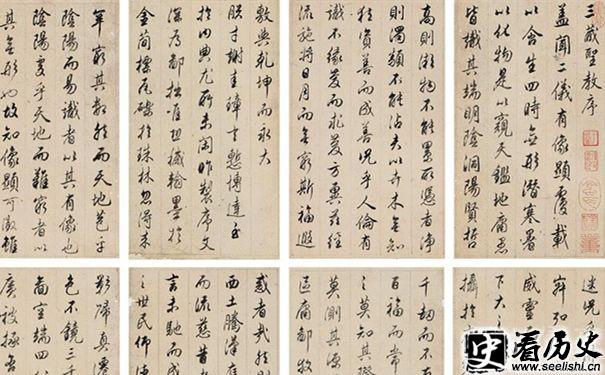 三藏聖教序
蓋聞二儀有像顯覆載
以含生四時無形潛寒暑
以化物是以窺天鑑地庸愚
皆識其端明陰洞陽賢哲
高則凝物不能累所憑者淨
則濁類不能沾夫以卉木無知
猶資善而成善況乎人倫有
識不緣慶而求慶方冀茲經
流施將日月而無窮斯福遐
敷與乾坤而永大
朕才謝圭璋言慙博達至
於內典尤所未閑昨製序文
深為鄙拙唯恐穢翰墨於
金簡標瓦礫於珠林忽得來
罕窮其數然而天地苞乎
陰陽而易識者以其有像也
陰陽處乎天地而難窮者以
其無形也故知像顯可徵雖
迷況乎
弉弘
威靈
下大之
攝於
千劫而不
百福而常
之莫知其際
莫測其源
區庸鄙
惑者哉然則
西土騰漢庭
而流慈昔
言未馳而成
之世民仰德
影歸真遷
色不鏡三千
圖空端四八
廣被拯含
史 看历史
www.seelishi.cn